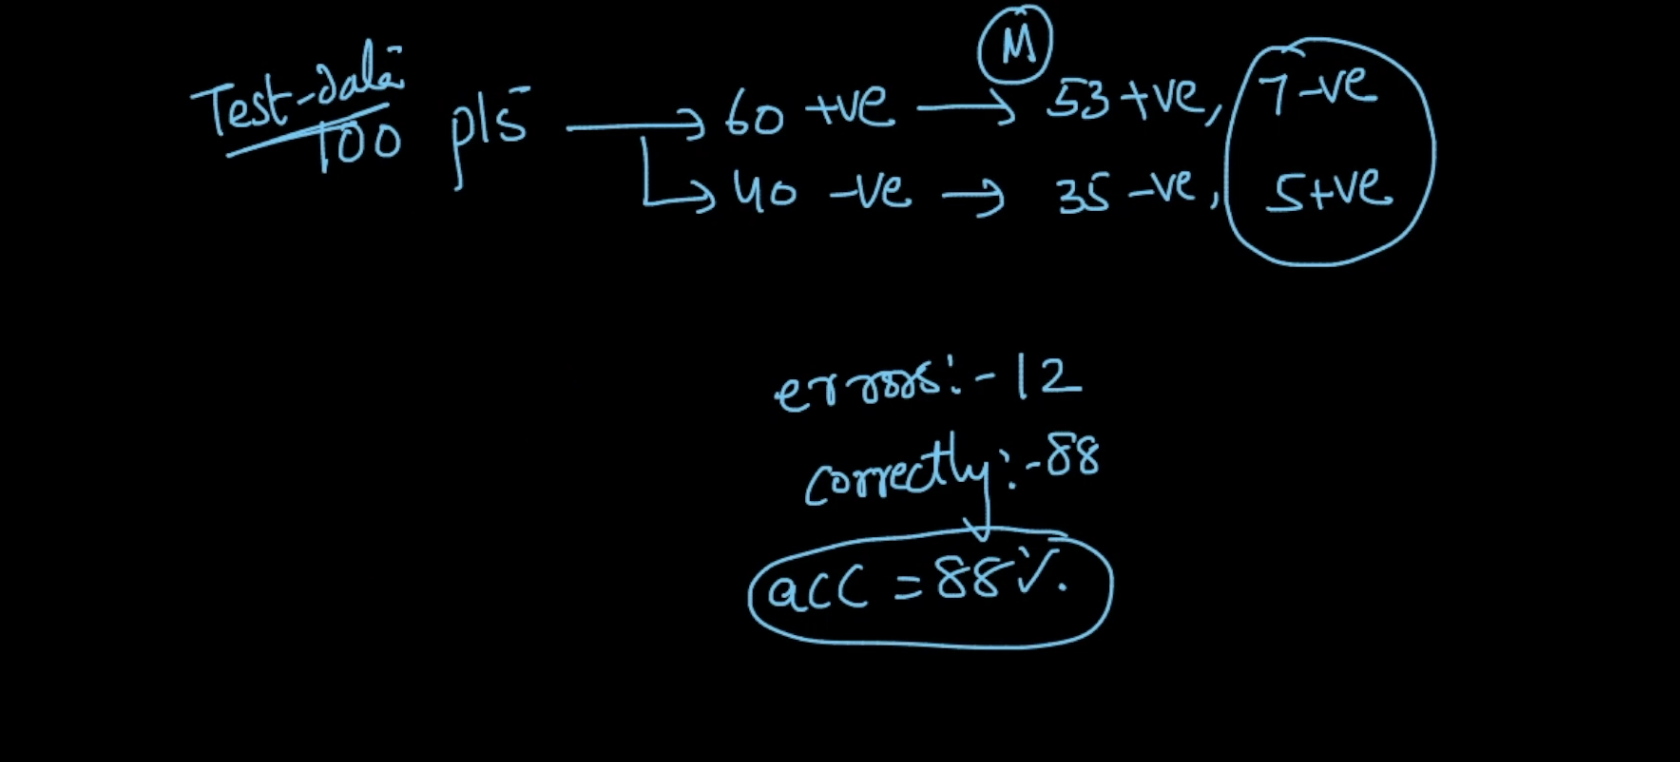 M
Test-data
100 pts → 60 +ve → 53 +ve, 7 -ve
→ 40 -ve → 35 -ve, 5 +ve
errors:- 12
correctly:- 88
acc = 88%.